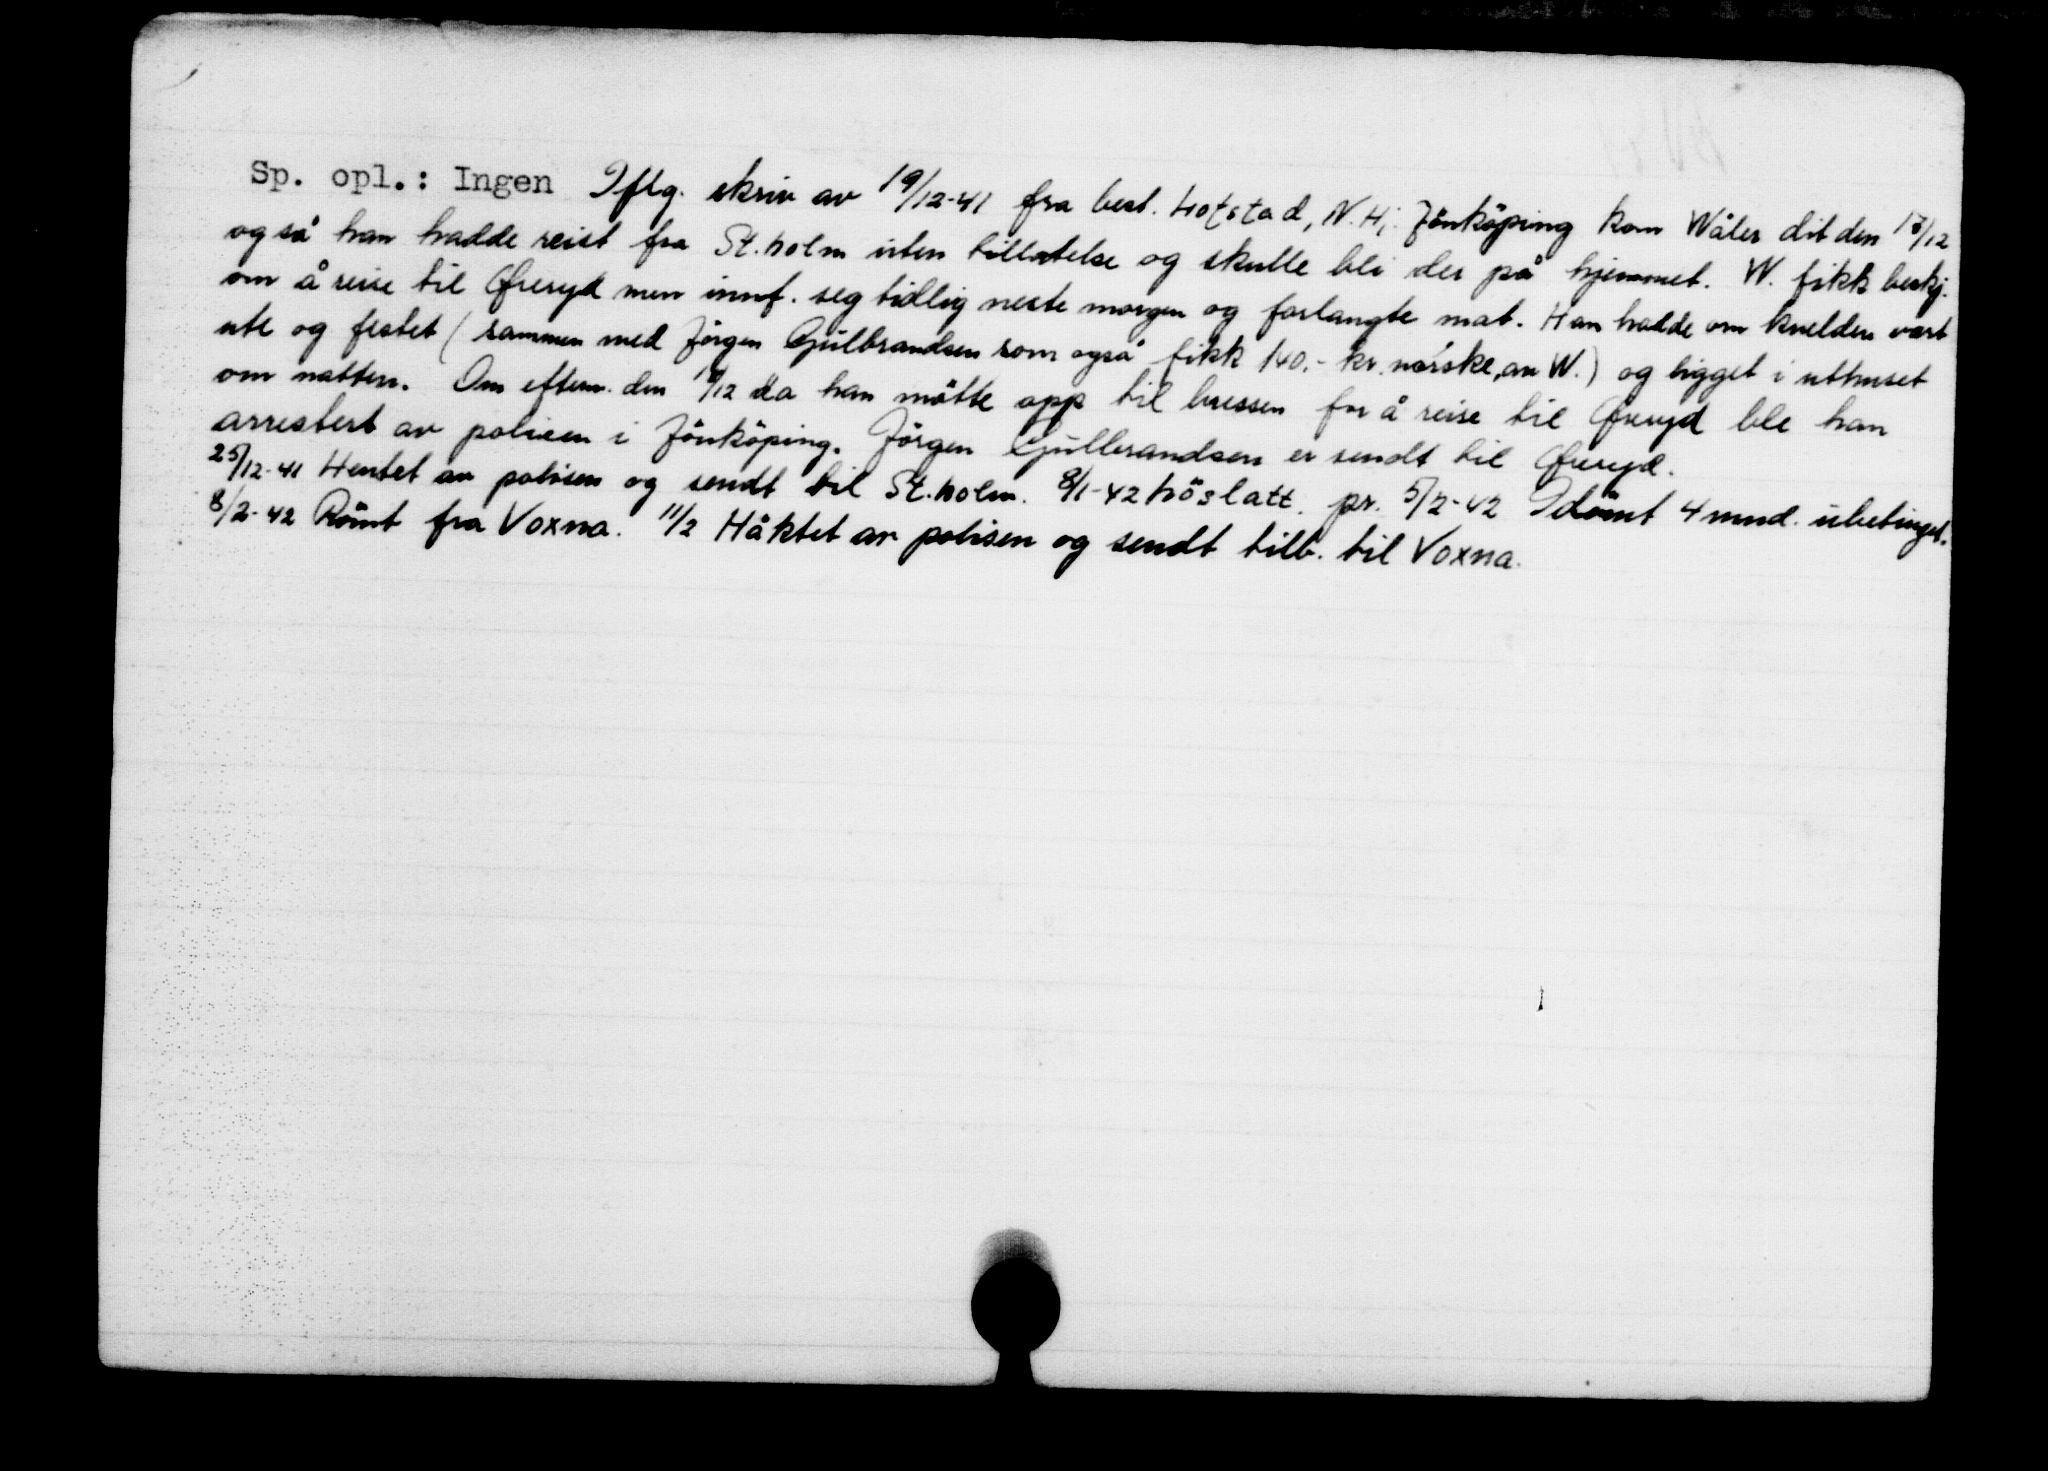 Sp. opl.: Ingen Iflg. skriv av 19/12-41 fra best. Hofstad, N.Hj. Jönköping kom Wåler dit den 17/12
og så han hadde reist fra St.holm uten tillatelse og skulle bli der på hjemmet. W. fikk beskj.
om å reise til Öreryd men innf. seg tidlig neste morgen og forlangte mat. Han hadde om kvelden vært
ute og festet (sammen med Jörgen Gulbrandsen som også fikk 140.- kr. norske, av W.) og ligget i uthuset
om natten. Om efterm. den 18/12 da han mötte opp til bussen for å reise til Öreryd ble han
arrestert av polisen i Jönköping. Jörgen Gulbrandsen er sendt til Öreryd.
25/12-41 Hentet av polisen og sendt til St.holm. 8/1-42 Höslatt. pr. 5/2-42 Idömt 4 mnd. ubetinget.
8/2-42 Römt fra Voxna. 11/2 Häktet av polisen og sendt tilb. til Voxna.